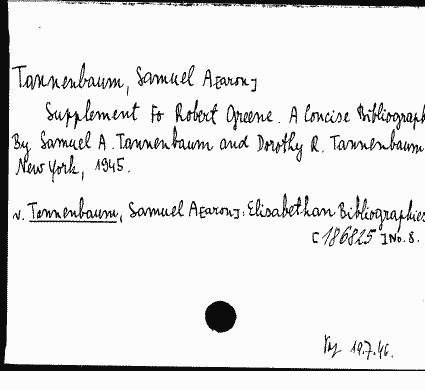 Tannenbaum, Samuel A[aron]
Supplement to Robert Greene. A Concise Bibliograph
By Samuel A. Tannenbaum and Dorothy R. Tannenbaum
New York, 1945.
v. Tannenbaum, Samuel A[aron]: Elisabethan Bibliographies
[186825] No. 8.
19.7.46.